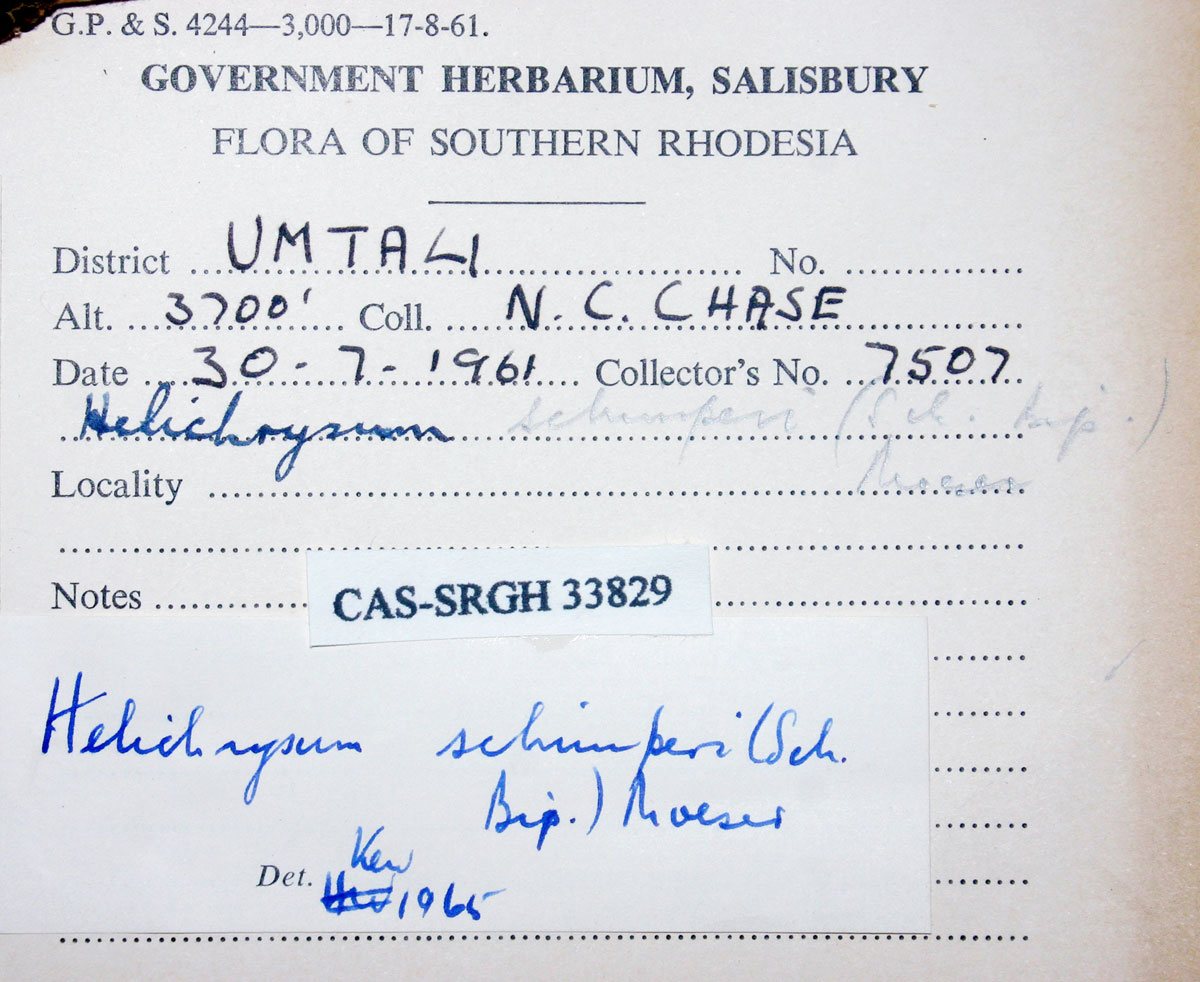 G.P. & S. 4244—3,000—17-8-61.
GOVERNMENT HERBARIUM, SALISBURY
FLORA OF SOUTHERN RHODESIA
District UMTALI No.
Alt. 3700' Coll. N. C. CHASE
Date 30-7-1961 Collector's No. 7507
Helichrysum schimperi (Sch. Bip.)
Moeser
Locality
Notes
CAS-SRGH 33829
Helichrysum schimperi (Sch.
Bip.) Moeser
Kew
Det. 1965